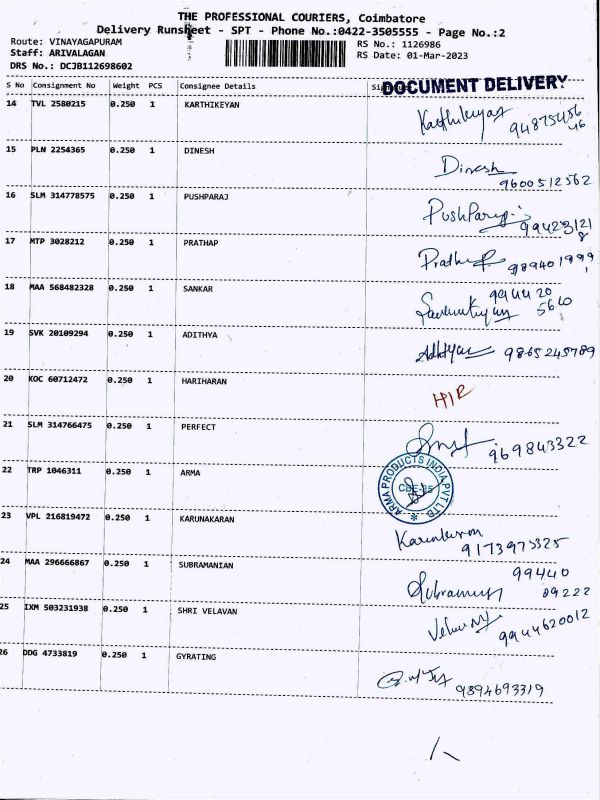 THE PROFESSIONAL COURIERS, Coimbatore
Delivery Runsheet - SPT - Phone No.:0422-3505555 - Page No.:2
Route: VINAYAGAPURAM RS No.: 1126986
Staff: ARIVALAGAN RS Date: 01-Mar-2023
DRS No.: DCJB112698602
S No Consignment No Weight PCS Consignee Details
DOCUMENT DELIVERY
14 TVL 2580215 0.250 1 KARTHIKEYAN Karthikeyan
15 PLN 2254365 0.250 1 DINESH Dinesh
9600512562
16 SLM 314778575 0.250 1 PUSHPARAJ PushParaj
17 MTP 3028212 0.250 1 PRATHAP
18 MAA 568482328 0.250 1 SANKAR 994420
5610
19 SVK 20109294 0.250 1 ADITHYA 9865245789
20 KOC 60712472 0.250 1 HARIHARAN
21 SLM 314766475 0.250 1 PERFECT 969843322
22 TRP 1046311 0.250 1 ARMA
ARMA PRODUCTS INDIA PVT LTD
CBE-35
23 VPL 216819472 0.250 1 KARUNAKARAN
9173975325
24 MAA 296666867 0.250 1 SUBRAMANIAN 99440
89222
25 IXM 503231938 0.250 1 SHRI VELAVAN
9944620012
26 DDG 4733819 0.250 1 GYRATING
9894693319